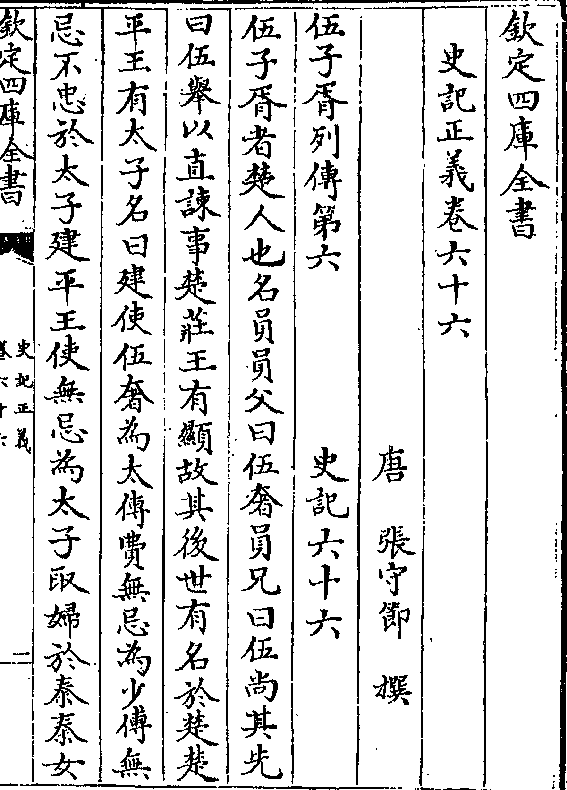 欽定四庫全書
史記正義卷六十六
唐 張守節 撰
伍子胥列傳第六 史記六十六
伍子胥者楚人也名員員父曰伍奢員兄曰伍尚其先
曰伍舉以直諫事楚莊王有顯故其後世有名於楚楚
平王有太子名曰建使伍奢為太傅費無忌為少傅無
忌不忠於太子建平王使無忌為太子取婦於秦秦女
欽定四庫全書
史記正義
卷六十六